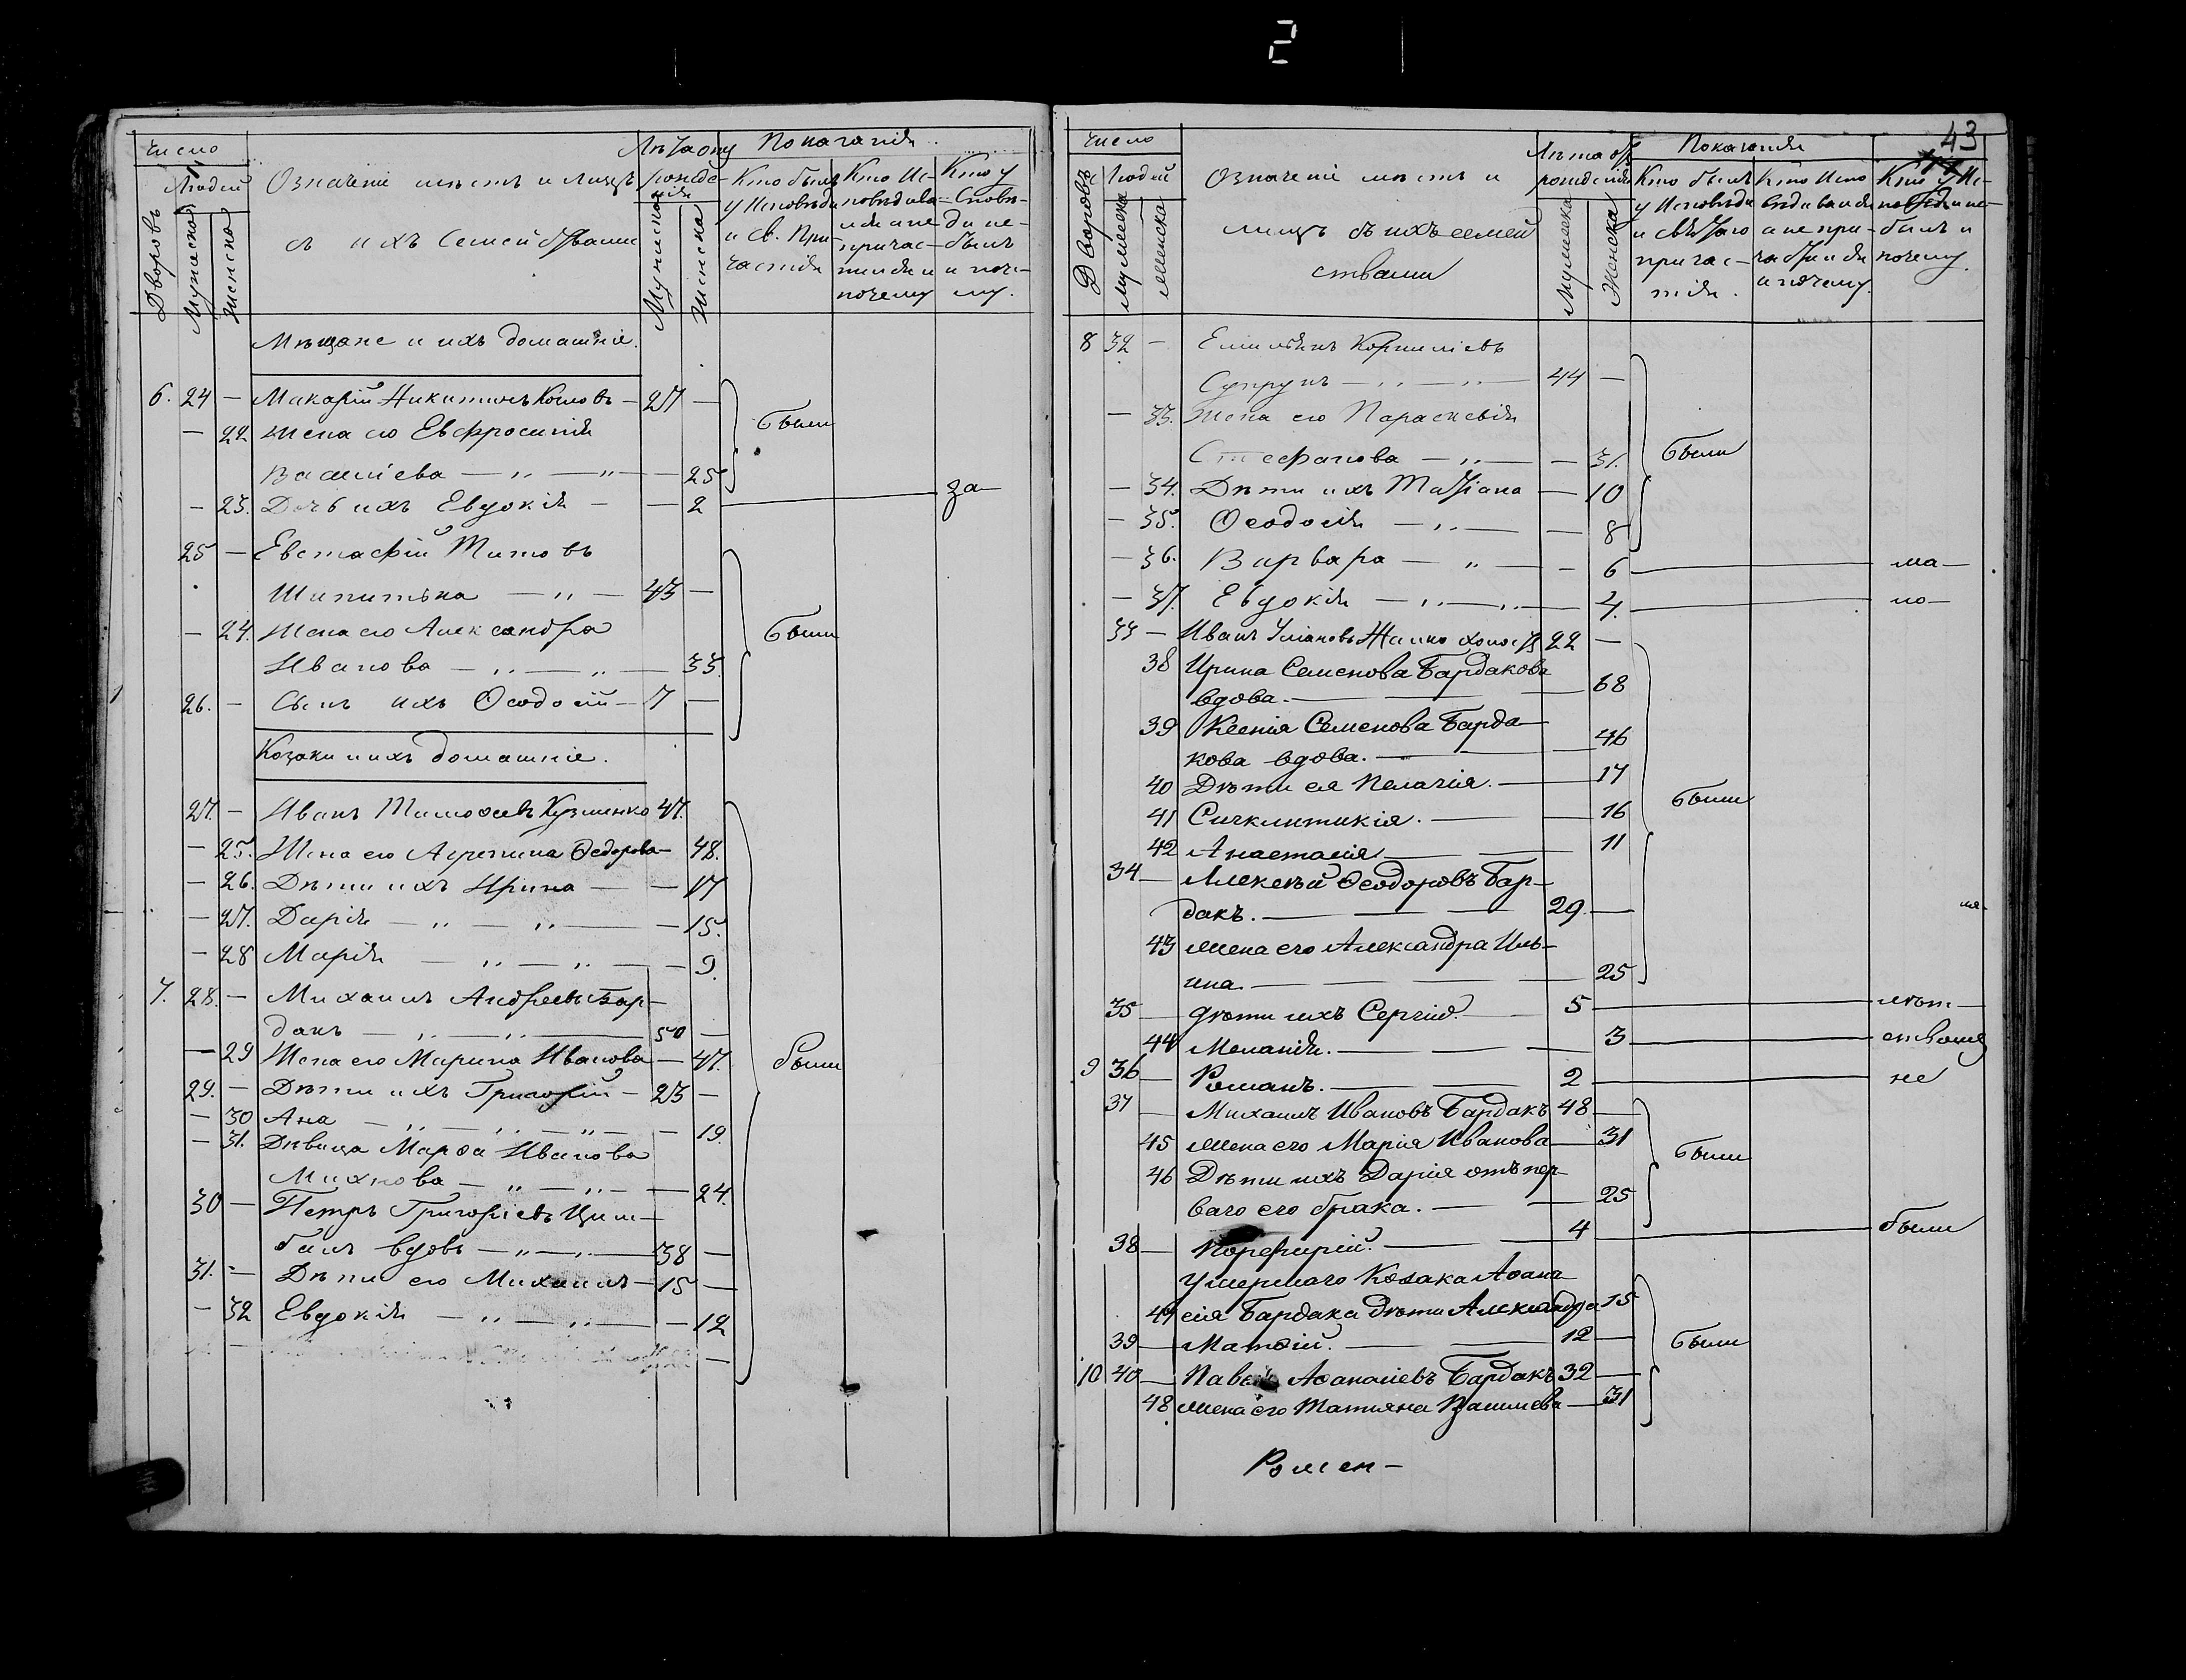 2
Число
Людей
Дворовъ
Мужеска
Женска
Означеніе мѣстъ и лицъ
съ ихъ Семействами
Лѣта отъ рожде-
нія
Мужеска
Женска
Показанія
Кто былъ
у Исповѣди
и Св. При-
частія
Кто Ис-
повѣдова-
лся а не
причас-
тился и
почему
Кто у
Исповѣ-
ди не
былъ
и поче-
му.
Мѣщане и ихъ домашніе.
6. 24 — Макарій Никитинъ — 27 —
— 22 Жена его Евфросинія
Василіева — „ — „ — 25
были
— 23. Дочь ихъ Евдокія — — 2 — за —
25 — Евстафій Титовъ
43 —
— 24. Жена его Александра
Иванова — „ — „ — 33
26. — Сынъ ихъ Ѳеодосій — 7 —
были
Козаки и ихъ домашніе.
27. — Иванъ Тимоѳеевъ Кузменко 47.
— 25. Жена его Агрепина Ѳедорова — 48.
— 26. Дѣти ихъ Ирина — — 17
— 27. Дарія — „ — „ — 15.
— 28 Марія — „ — „ — 9.
7. 28. — Михаилъ Андреевъ Бар-
дакъ — „ — „ — 50 —
— 29 Жена его Марина Иванова — 47.
29. — Дѣти ихъ Григорій — 23 —
— 30 Ана — „ — „ — „ — 19.
— 31. Дѣвица Марѳа Иванова
Михнова — „ — „ — 24.
30 — Петръ Григоріевъ Цим-
балъ вдовъ — „ — „ — 38 —
31. — Дѣти его Михаилъ — 15 —
— 32 Евдокія — „ — „ — 12
были
43
Число
Людей
Дворовъ
Мужеска
Женска
Означеніе мѣстъ и
лицъ съ ихъ семей
ствами
Лѣта отъ
рожденія
Мужеска
Женска
Показанія
Кто былъ
у Исповѣди
и святаго
причас-
тія.
Кто Испо
вѣдовался
а не при-
частился
и почему.
Кто у Ис-
повѣди не
былъ и
почему.
8 32 — Емиліянъ Корниліевъ
Супрунъ — „ — „ — 44 —
— 33. Жена его Параскевія
Стефанова — „ — — 31.
— 34. Дѣти ихъ Татіана — 10
— 35. Ѳеодосія — „ — — 8
были
— 36. Варвара — „ — — 6 — ма —
— 37. Евдокія — „ — „ — 4. — ло —
33 — Иванъ холостъ 22 —
38 Ирина Семенова Бардакова
вдова. — — 68
39 Ксенія Семенова Барда-
кова вдова. — — 46
40 Дѣти ея Пелагія. — 17
41 Сигклитикія. — — 16
42 Анастасія — — 11
34 — Алексѣй Ѳеодоровъ Бар-
дакъ. — — — 29. —
43 жена его Александра Иль-
ина. — — — 25
были
35 — дѣти ихъ Сергій. — 5 — лѣт —
44 Меланія. — — — 3 — ствомъ
9 36 — Романъ. — — 2 — не
37 — Михаилъ Ивановъ Бардакъ 48 —
45 жена его Марія Иванова — 31
46 Дѣти ихъ Дарія отъ пер-
ваго его брака. — — 25
были
38 — Порфирій. — — 4 — были
Умершаго Козака Аѳана-
47 сія Бардака дѣти Александра 15
39 — Матѳій. — — 12 —
10 40 — Павелъ Аѳанасіевъ Бардакъ 32 —
48. жена его Татіяна Василіева — 31
были
Ромен-